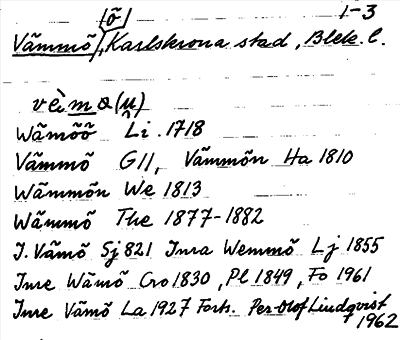 /õ/ 1-3
Vãmmõ/, Karlskrona stad, Blek. l.
vèmə(u)
Wãmõõ Li. 1718
Vãmmõ G11, Vãmmõn Ha 1810
Wãmmõn We 1813
Wãmmõ The 1877-1882
I. Vãmõ Sj 821 Inra Wemmõ Lj 1855
Inre Wãmõ Cro 1830, Pl 1849, Fo 1961
Inre Vãmõ La 1927 Forts. Per-Olof Lindqvist
1962